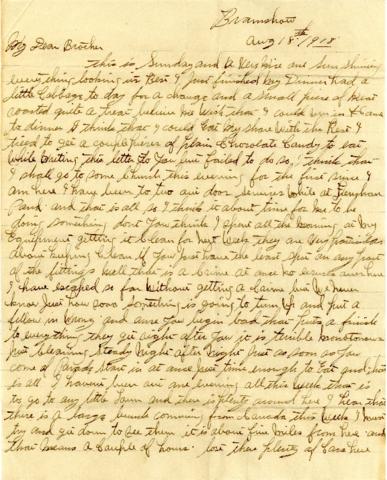 Bramshott
Aug 18th 1918
My Dear Brother
This is Sunday and a very fine one Sun shining
everything looking its Best I just finished my Dinner had a
little Cabbage to day for a change and a small piece of Meat
roasted quite a treat believe me wish that I could run in home
to dinner I think that I could Eat my share with the Rest I
tried to get a couple pieces of plain Chocolate Candy to eat
while writing this letter to you but failed to do so, I think that
I shall go to some Church this evening for the first since I
am here I have been to two air door services while at
Park and that is all so I think it about time for me to be
doing something don't you think I spent all the morning at my
Equipment getting it clean for next week they are very particular
about anything clean if you just have the least spot on any part
of the fittings well there is a crime at once no excuse
I have escaped so far without getting a crime but we never
know just how soon something is going to turn up and put a
fellow in wrong and once you begin bad that puts a finish
to everything they get right after you it is terrible monotonous
just cleaning steady Night after Night just as soon as you
come of Parade start in at once just time enough to Eat and that
is all I haven't been out one evening all this week that is
to go to any little town and there is plenty around here I hear that
there is a large bunch comming from Canada this week I must
try and get down to see them it is about five miles from here and
that means a couple of hours there plenty of cars here